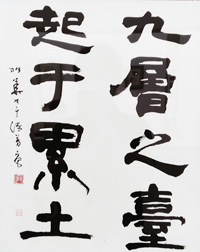 九層之臺
起于累土